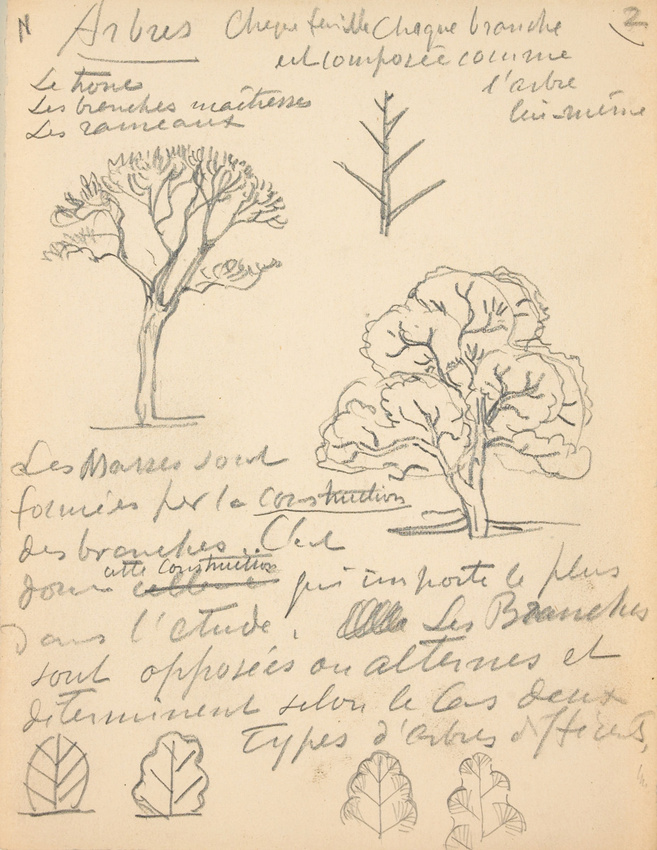 N
2
Arbres Chaque feuille Chaque branche
est composée comme
l'arbre
lui-même
Le tronc
Les branches maîtresses
Les rameaux
Les Masses sont
formées par la construction
des branches. C'est
donc cette Construction qui importe le plus
dans l'étude. Les Branches
sont opposées ou alternes et
déterminent selon le Cas deux
Types d'arbres différents.